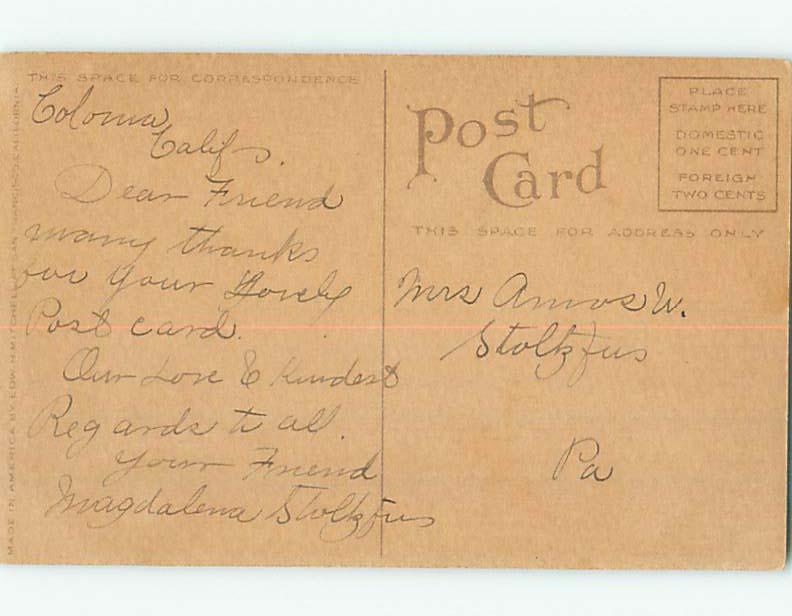 THIS SPACE FOR CORRESPONDENCE
Coloma,
Califs.
Dear Friend
many thanks
for your Lovely
Post card.
Our Love & kindest
Regards to all.
your Friend
Magdalena Stoltzfus
POST CARD
PLACE
STAMP HERE
DOMESTIC
ONE CENT
FOREIGN
TWO CENTS
THIS SPACE FOR ADDRESS ONLY
Mrs Amos W.
Stoltzfus
Pa
MADE IN AMERICA BY EDW. H. MITCHELL, SAN FRANCISCO, CALIFORNIA.